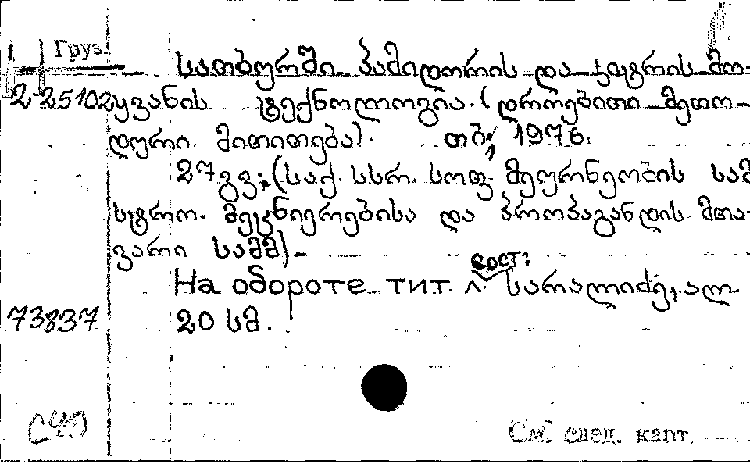 Груз.
სათბურში პამიდორის და კიტრის მო-
2 25102 ყვანის ტექნოლოგია. (დროებითი მეთო-
დური მითითება). თბ., 1976.
27 გვ.; (საქ. სსრ. სოფ. მეურნეობის სამ
სტრო. მეცნიერებისა და პროპაგანდის მთა-
ვარი სამმ). -
На обороте тит. л. сост: სარალიძე, ალ.
73837 20 სმ.
См. след. карт.